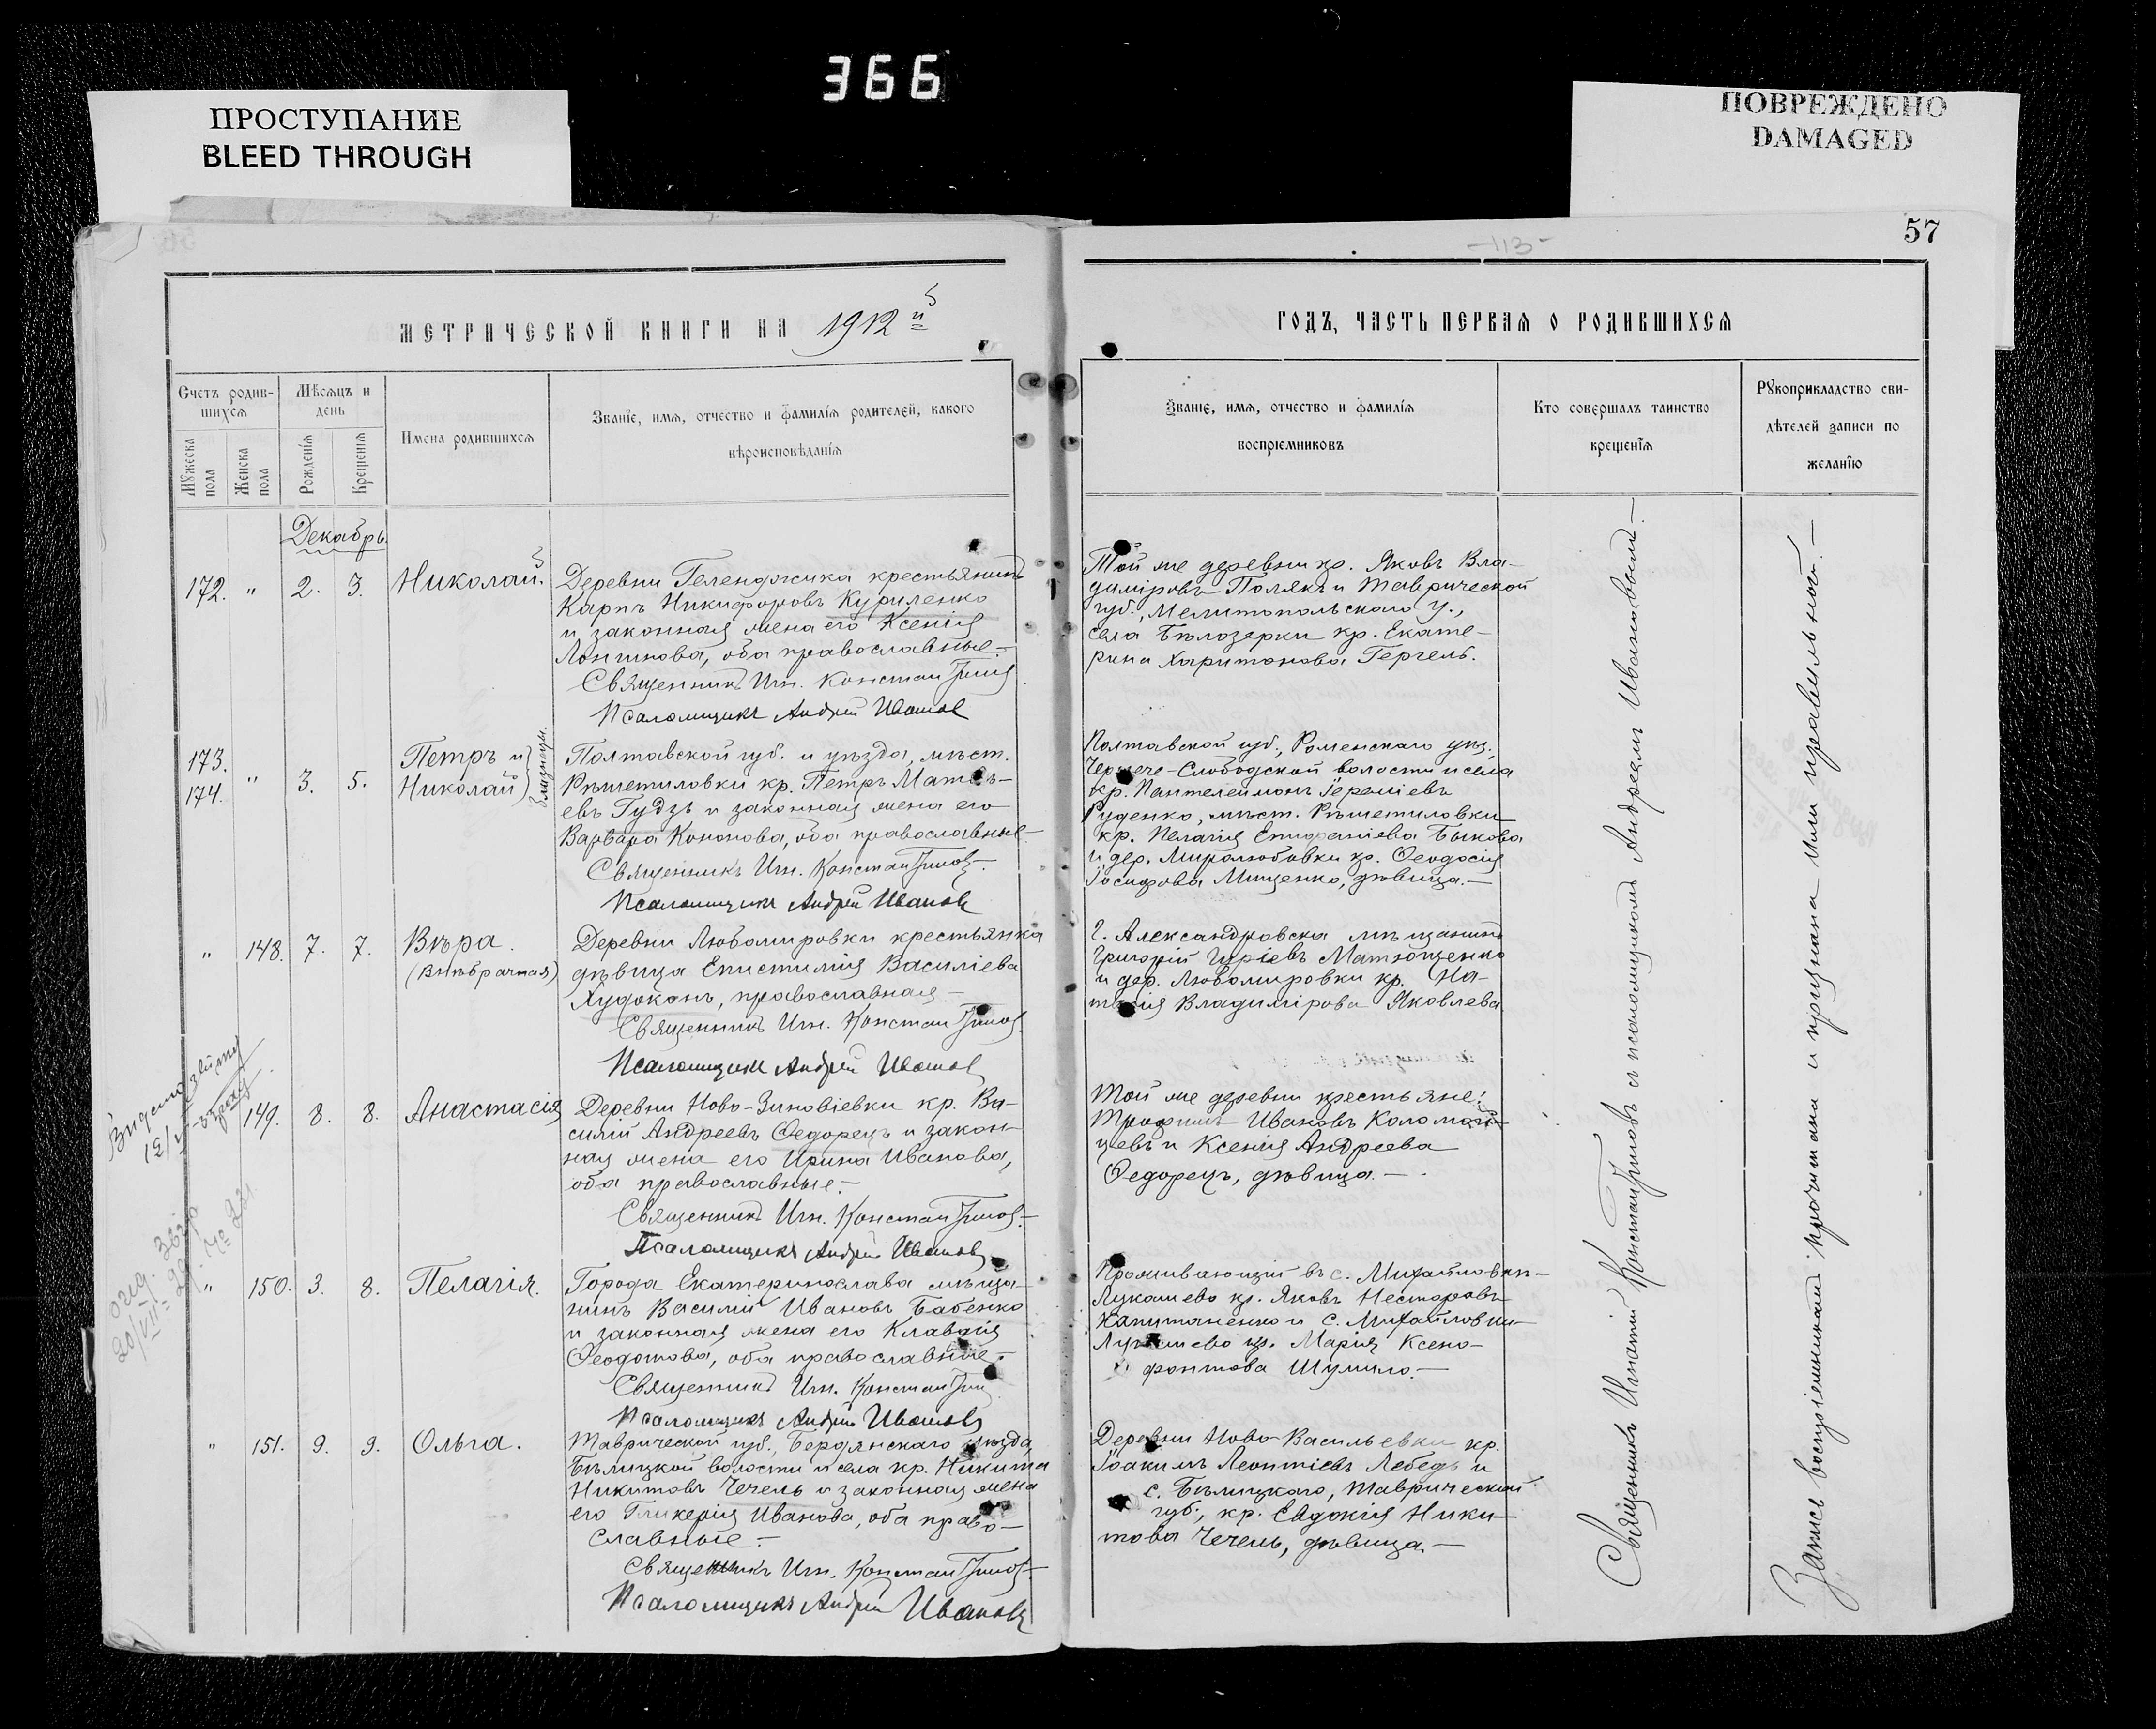 366
ПРОСТУПАНИЕ
BLEED THROUGH
ПОВРЕЖДЕНО
DAMAGED
57
-113-
МЕТРИЧЕСКОЙ КНИГИ НА 1912й
ГОДЪ, ЧАСТЬ ПЕРВАЯ О РОДИВШИХСЯ
Счетъ родив-
шихся
Мѣсяцъ и
день
Мужеска
пола
Женска
пола
Рожденія
Крещенія
Имена родившихся
Званіе, имя, отчество и фамилія родителей, какого
вѣроисповѣданія
Званіе, имя, отчество и фамилія
воспріемниковъ
Кто совершалъ таинство
крещенія
Рукоприкладство сви-
дѣтелей записи по
желанію
Декабрь.
172. " 2. 3. Николай.
Деревни Геленджика крестьянинъ
Карпъ Никифоровъ Куриленко
и законная жена его Ксенія
Логинова, оба православные.-
Священникъ Игн. Константиновъ
Псаломщикъ Андрей Ивановъ
Той же деревни кр. Яковъ Вла-
диміровъ Полякъ и Таврической
губ., Мелитопольскаго у.,
села Бѣлозерки кр. Екате-
рина Харитонова Гергель.
173.
174.
" 3. 5.
Петръ и
Николай
близнецы.
Полтавской губ. и уѣзда, мѣст.
Рѣшетиловки кр. Петръ Матвѣ-
евъ Гудзь и законная жена его
Варвара Кононова, оба православные-
Священникъ Игн. Константиновъ.-
Псаломщикъ Андрей Ивановъ
Полтавской губ., Роменскаго уѣз.
Чернече-Слободской волости и села
кр. Пантелеимонъ Іереміевъ
Руденко, мѣст. Рѣшетиловки
кр. Пелагія Епифаніева Быкова
и дер. Миролюбовки кр. Ѳеодосія
Іосифова Мищенко, дѣвица.-
" 148. 7. 7. Вѣра.
(Внѣбрачная)
Деревни Любомировки крестьянка
дѣвица Епистимія Василіева
Худоконь, православная-
Священникъ Игн. Константиновъ.
Псаломщикъ Андрей Ивановъ
г. Александровска мѣщанинъ
Григорій Гуріевъ Матющенко
и дер. Любомировки кр. На-
талія Владимірова Яковлева.
149. 8. 8. Анастасія
Деревни Ново-Зиновіевки кр. Ва-
силій Андреевъ Ѳедорецъ и закон-
ная жена его Ирина Иванова,
оба православные.-
Священникъ Игн. Константиновъ.-
Псаломщикъ Андрей Ивановъ
Той же деревни крестьяне:
Трофимъ Ивановъ Коломой-
цевъ и Ксенія Андреева
Ѳедорецъ, дѣвица.-
" 150. 3. 8. Пелагія.
Города Екатеринослава мѣща-
нинъ Василій Ивановъ Бабенко
и законная жена его Клавдія
Ѳеодотова, оба православные.-
Священникъ Игн. Константин
Псаломщикъ Андрей Ивановъ
Проживающій въ с. Михайловкѣ-
Лукашево кр. Яковъ Несторовъ
Капитаненко и с. Михайловки-
Лукашево кр. Марія Ксено-
фонтова Шумило.-
" 151. 9. 9. Ольга.
Таврической губ., Бердянскаго уѣзда,
Бѣлицкой волости и села кр. Никита
Никитовъ Чечель и законная жена
его Гликерія Иванова, оба право-
славные.-
Священникъ Игн. Константиновъ.-
Псаломщикъ Андрей Ивановъ
Деревни Ново-Васильевки кр.
Іоакимъ Леонтіевъ Лебедь и
с. Бѣлицкаго, Таврической
губ., кр. Евдокія Ники-
това Чечель, дѣвица.-
Священникъ Игнатій Константиновъ съ псаломщикомъ Андреемъ Ивановымъ.-
Запись воспріемниками прочитана и признана ими правильной.-